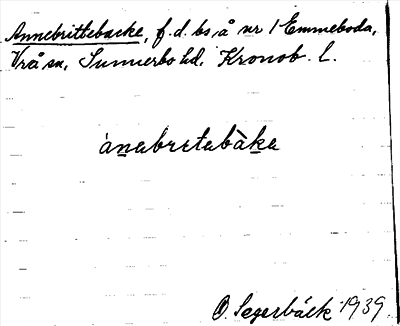 Annebrittebacke, f.d. bs, å nr 1 Emmeboda,
Vrå sn, Sunnerbo hd, Kronob. l.
ànabrɩtabàka
O. Segerbäck 1939.